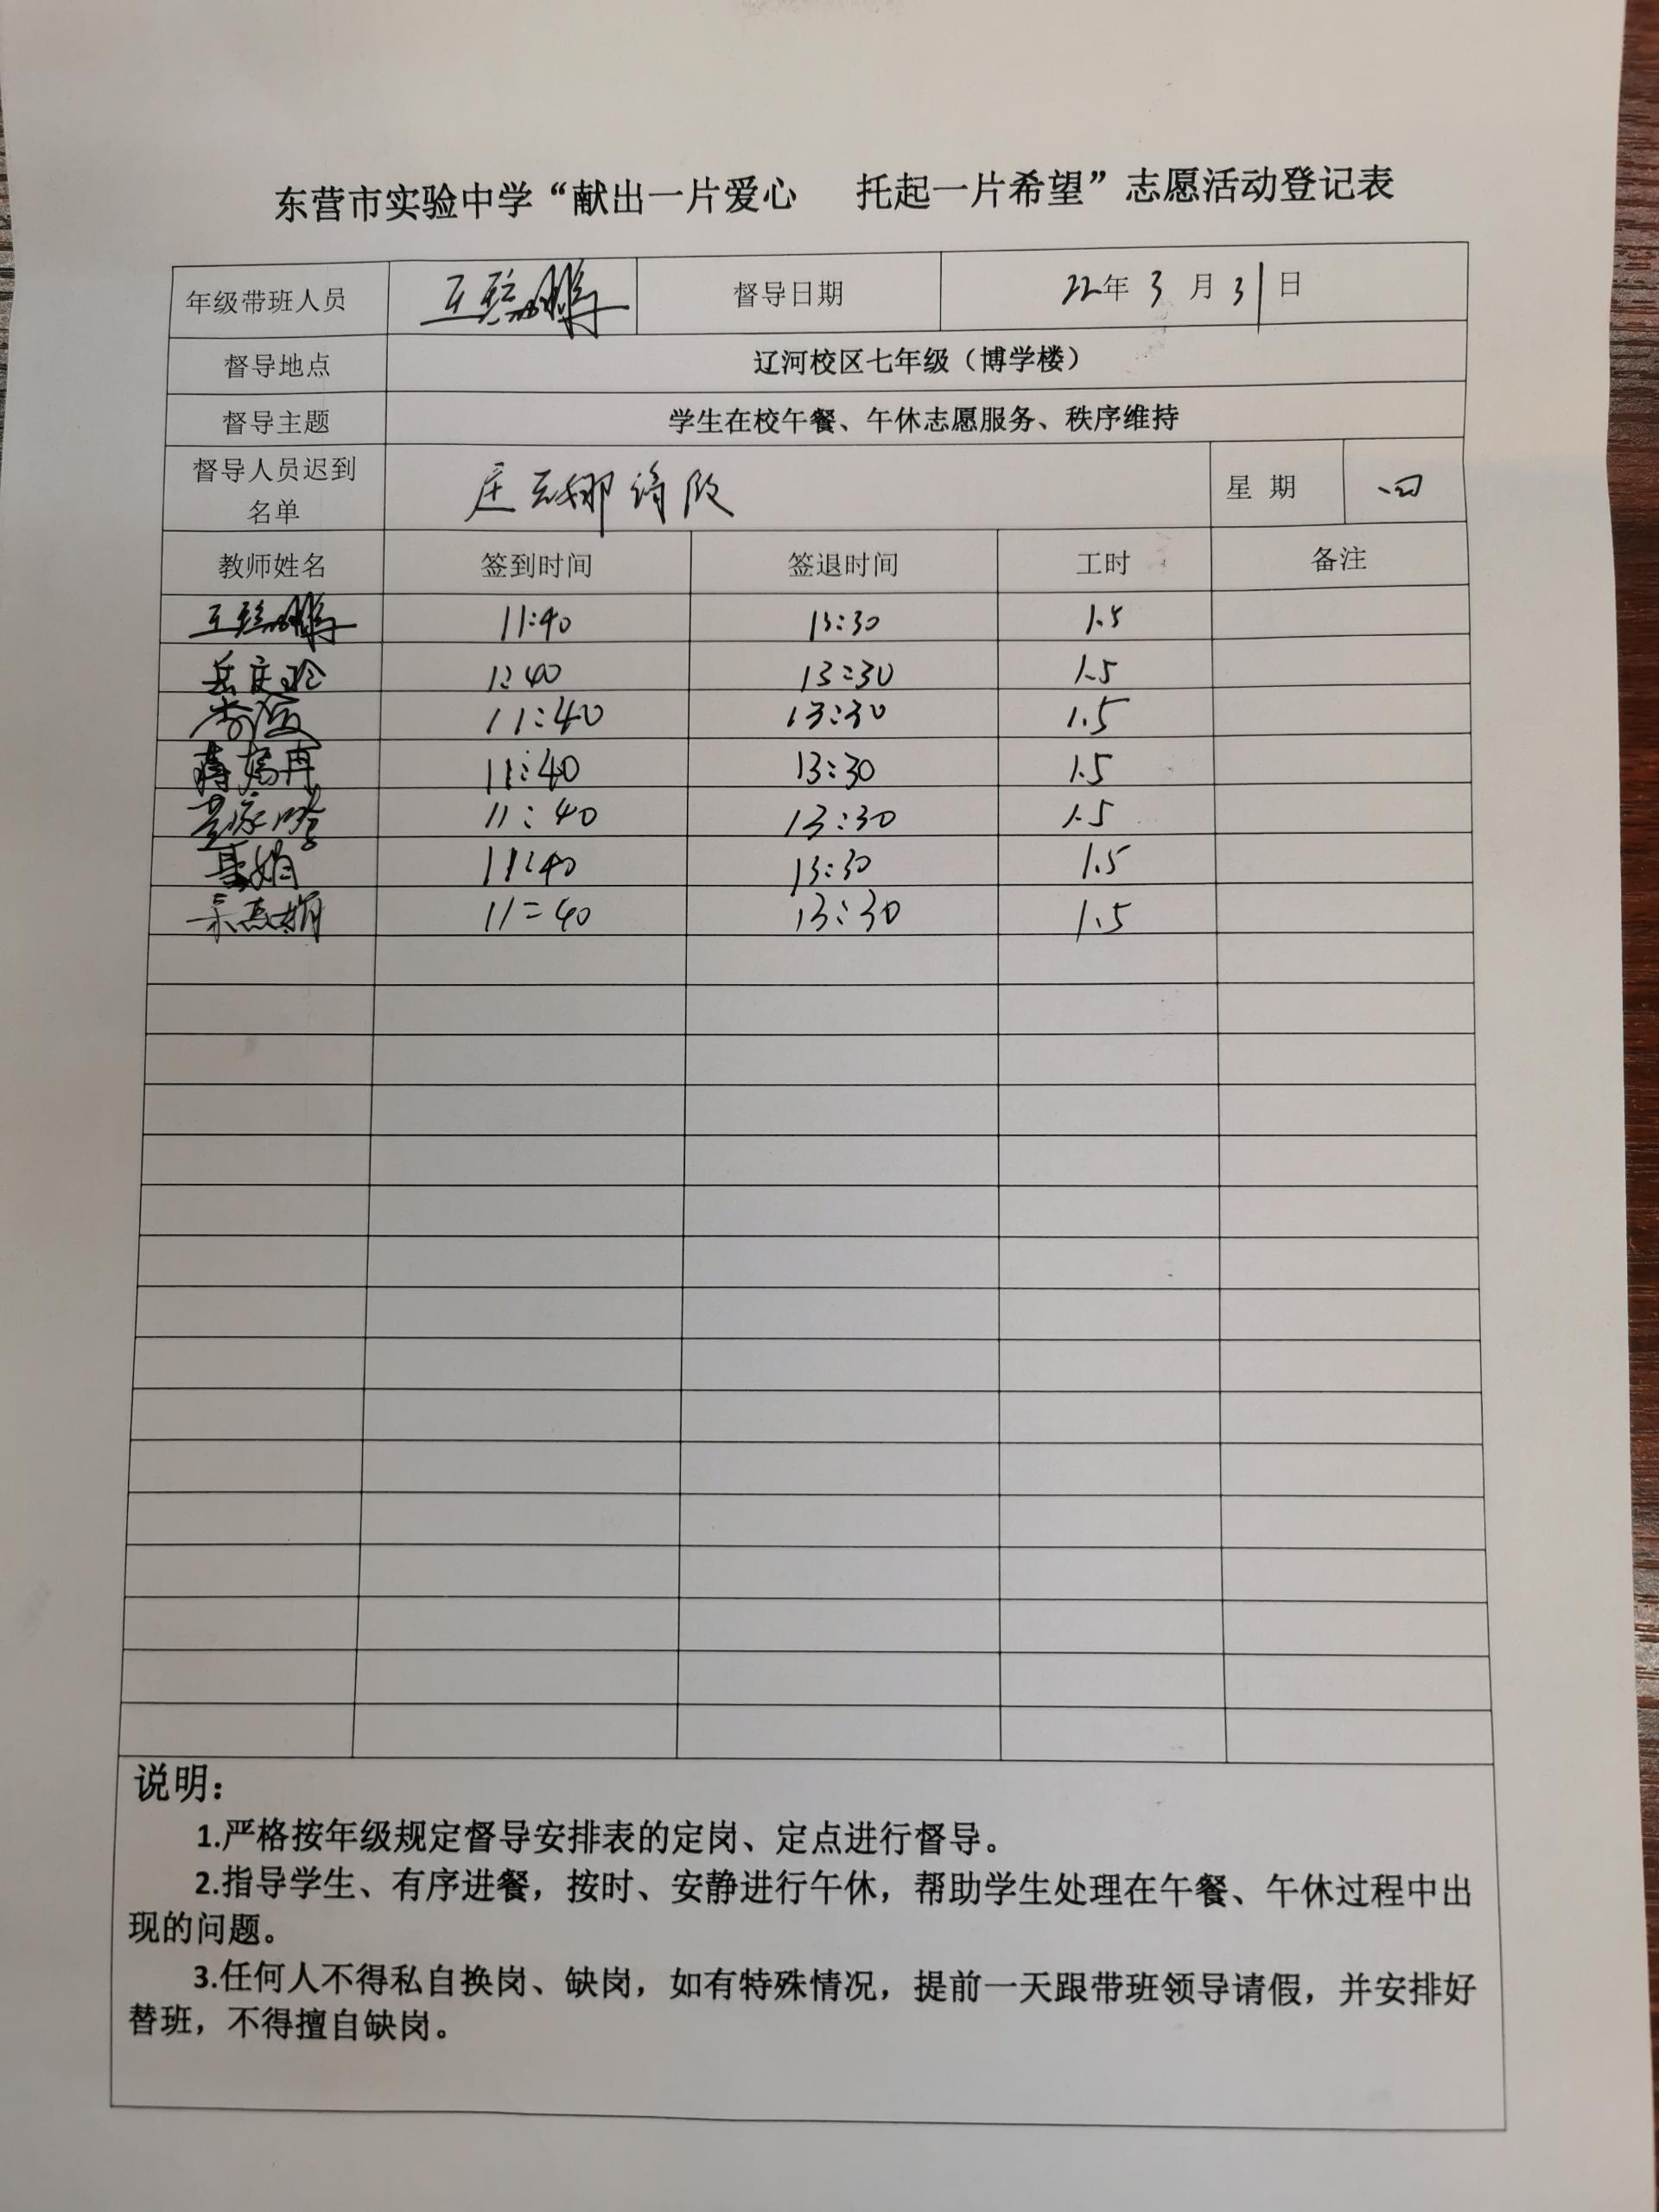 东营市实验中学“献出一片爱心 托起一片希望”志愿活动登记表
年级带班人员 督导日期 22年 3 月 31 日
督导地点 辽河校区七年级（博学楼）
督导主题 学生在校午餐、午休志愿服务、秩序维持
督导人员迟到
名单 星 期 四
教师姓名 签到时间 签退时间 工时 备注
11:40 13:30 1.5
13:30 1.5
11:40 13:30 1.5
11:40 13:30 1.5
11:40 13:30 1.5
11:40 13:30 1.5
11:40 13:30 1.5
说明：
1.严格按年级规定督导安排表的定岗、定点进行督导。
2.指导学生、有序进餐，按时、安静进行午休，帮助学生处理在午餐、午休过程中出
现的问题。
3.任何人不得私自换岗、缺岗，如有特殊情况，提前一天跟带班领导请假，并安排好
替班，不得擅自缺岗。